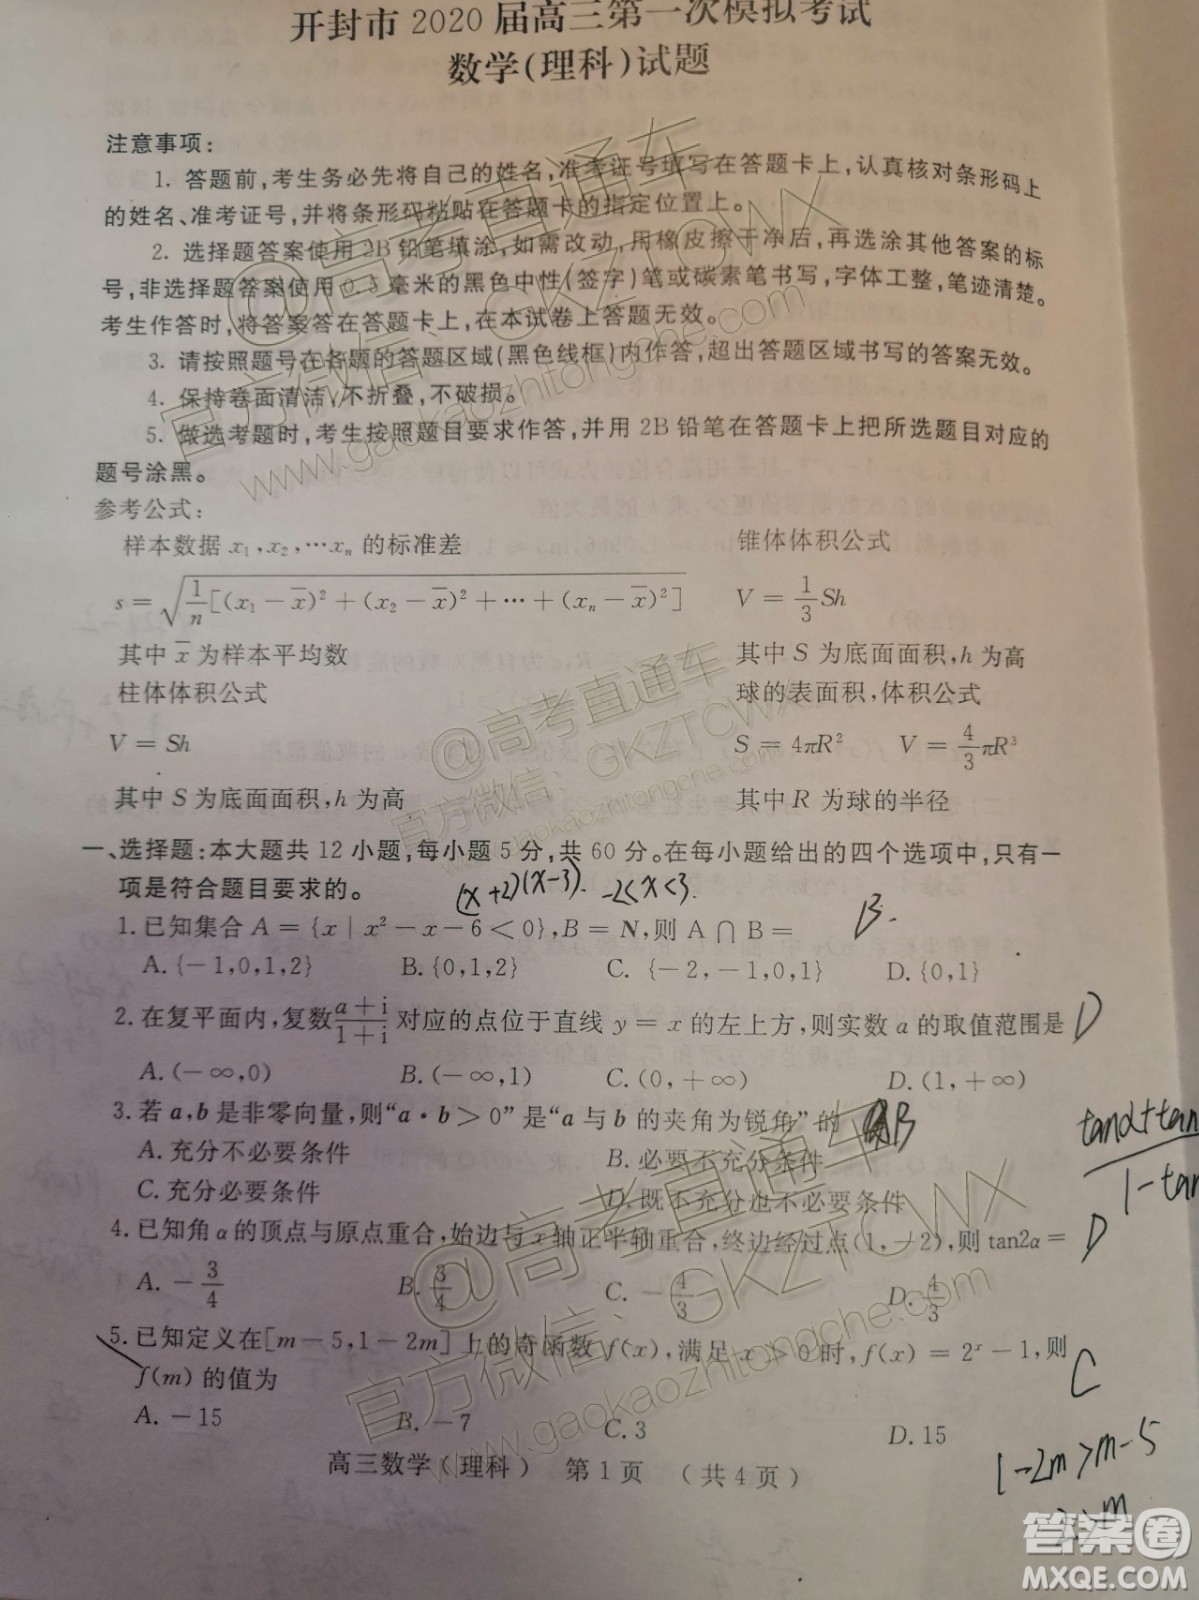 开封市 2020 届高三第一次模拟考试
数学(理科)试题
注意事项:
1. 答题前,考生务必先将自己的姓名,准考证号填写在答题卡上,认真核对条形码上
的姓名、准考证号,并将条形码粘贴在答题卡的指定位置上。
2. 选择题答案使用 2B 铅笔填涂,如需改动,用橡皮擦干净后,再选涂其他答案的标
号,非选择题答案使用 0.5 毫米的黑色中性(签字)笔或碳素笔书写,字体工整,笔迹清楚。
考生作答时,将答案答在答题卡上,在本试卷上答题无效。
3. 请按照题号在各题的答题区域(黑色线框)内作答,超出答题区域书写的答案无效。
4. 保持卷面清洁,不折叠,不破损。
5. 做选考题时,考生按照题目要求作答,并用 2B 铅笔在答题卡上把所选题目对应的
题号涂黑。
参考公式:
样本数据 x₁,x₂,⋯xₙ 的标准差 锥体体积公式
s=√(1/n[(x₁-x̄)²+(x₂-x̄)²+⋯+(xₙ-x̄)²]) V=1/3Sh
其中 x̄ 为样本平均数 其中 S 为底面面积,h 为高
柱体体积公式 球的表面积,体积公式
V=Sh S=4πR² V=4/3πR³
其中 S 为底面面积,h 为高 其中 R 为球的半径
一、选择题:本大题共 12 小题,每小题 5 分,共 60 分。在每小题给出的四个选项中,只有一
项是符合题目要求的。 (x+2)(x-3). -2<x<3.
1. 已知集合 A={x|x²-x-6<0},B=N,则 A∩B= B.
A. {-1,0,1,2} B. {0,1,2} C. {-2,-1,0,1} D. {0,1}
2. 在复平面内,复数(a+i)/(1+i)对应的点位于直线 y=x 的左上方,则实数 a 的取值范围是 D
A. (-∞,0) B. (-∞,1) C. (0,+∞) D. (1,+∞)
3. 若 a,b 是非零向量,则“a·b>0”是“a 与 b 的夹角为锐角”的 B
A. 充分不必要条件 B. 必要不充分条件
C. 充分必要条件 D. 既不充分也不必要条件
tanα+tan
1-tan
4. 已知角 α 的顶点与原点重合,始边与 x 轴正半轴重合,终边经过点(1,-2),则 tan2α= D
A. -3/4 B. 3/4 C. -4/3 D. 4/3
5. 已知定义在[m-5,1-2m]上的奇函数 f(x),满足 x>0 时,f(x)=2ˣ-1,则
f(m)的值为 C
A. -15 B. -7 C. 3 D. 15
1-2m>m-5
2>m
高三数学(理科) 第 1 页 (共 4 页)
@高考直通车
官方微信:GKZTCWX
www.gaokaozhitongche.com
@高考直通车
官方微信:GKZTCWX
www.gaokaozhitongche.com
@高考直通车
官方微信:GKZTCWX
www.gaokaozhitongche.com
答案圈
MXQE.COM